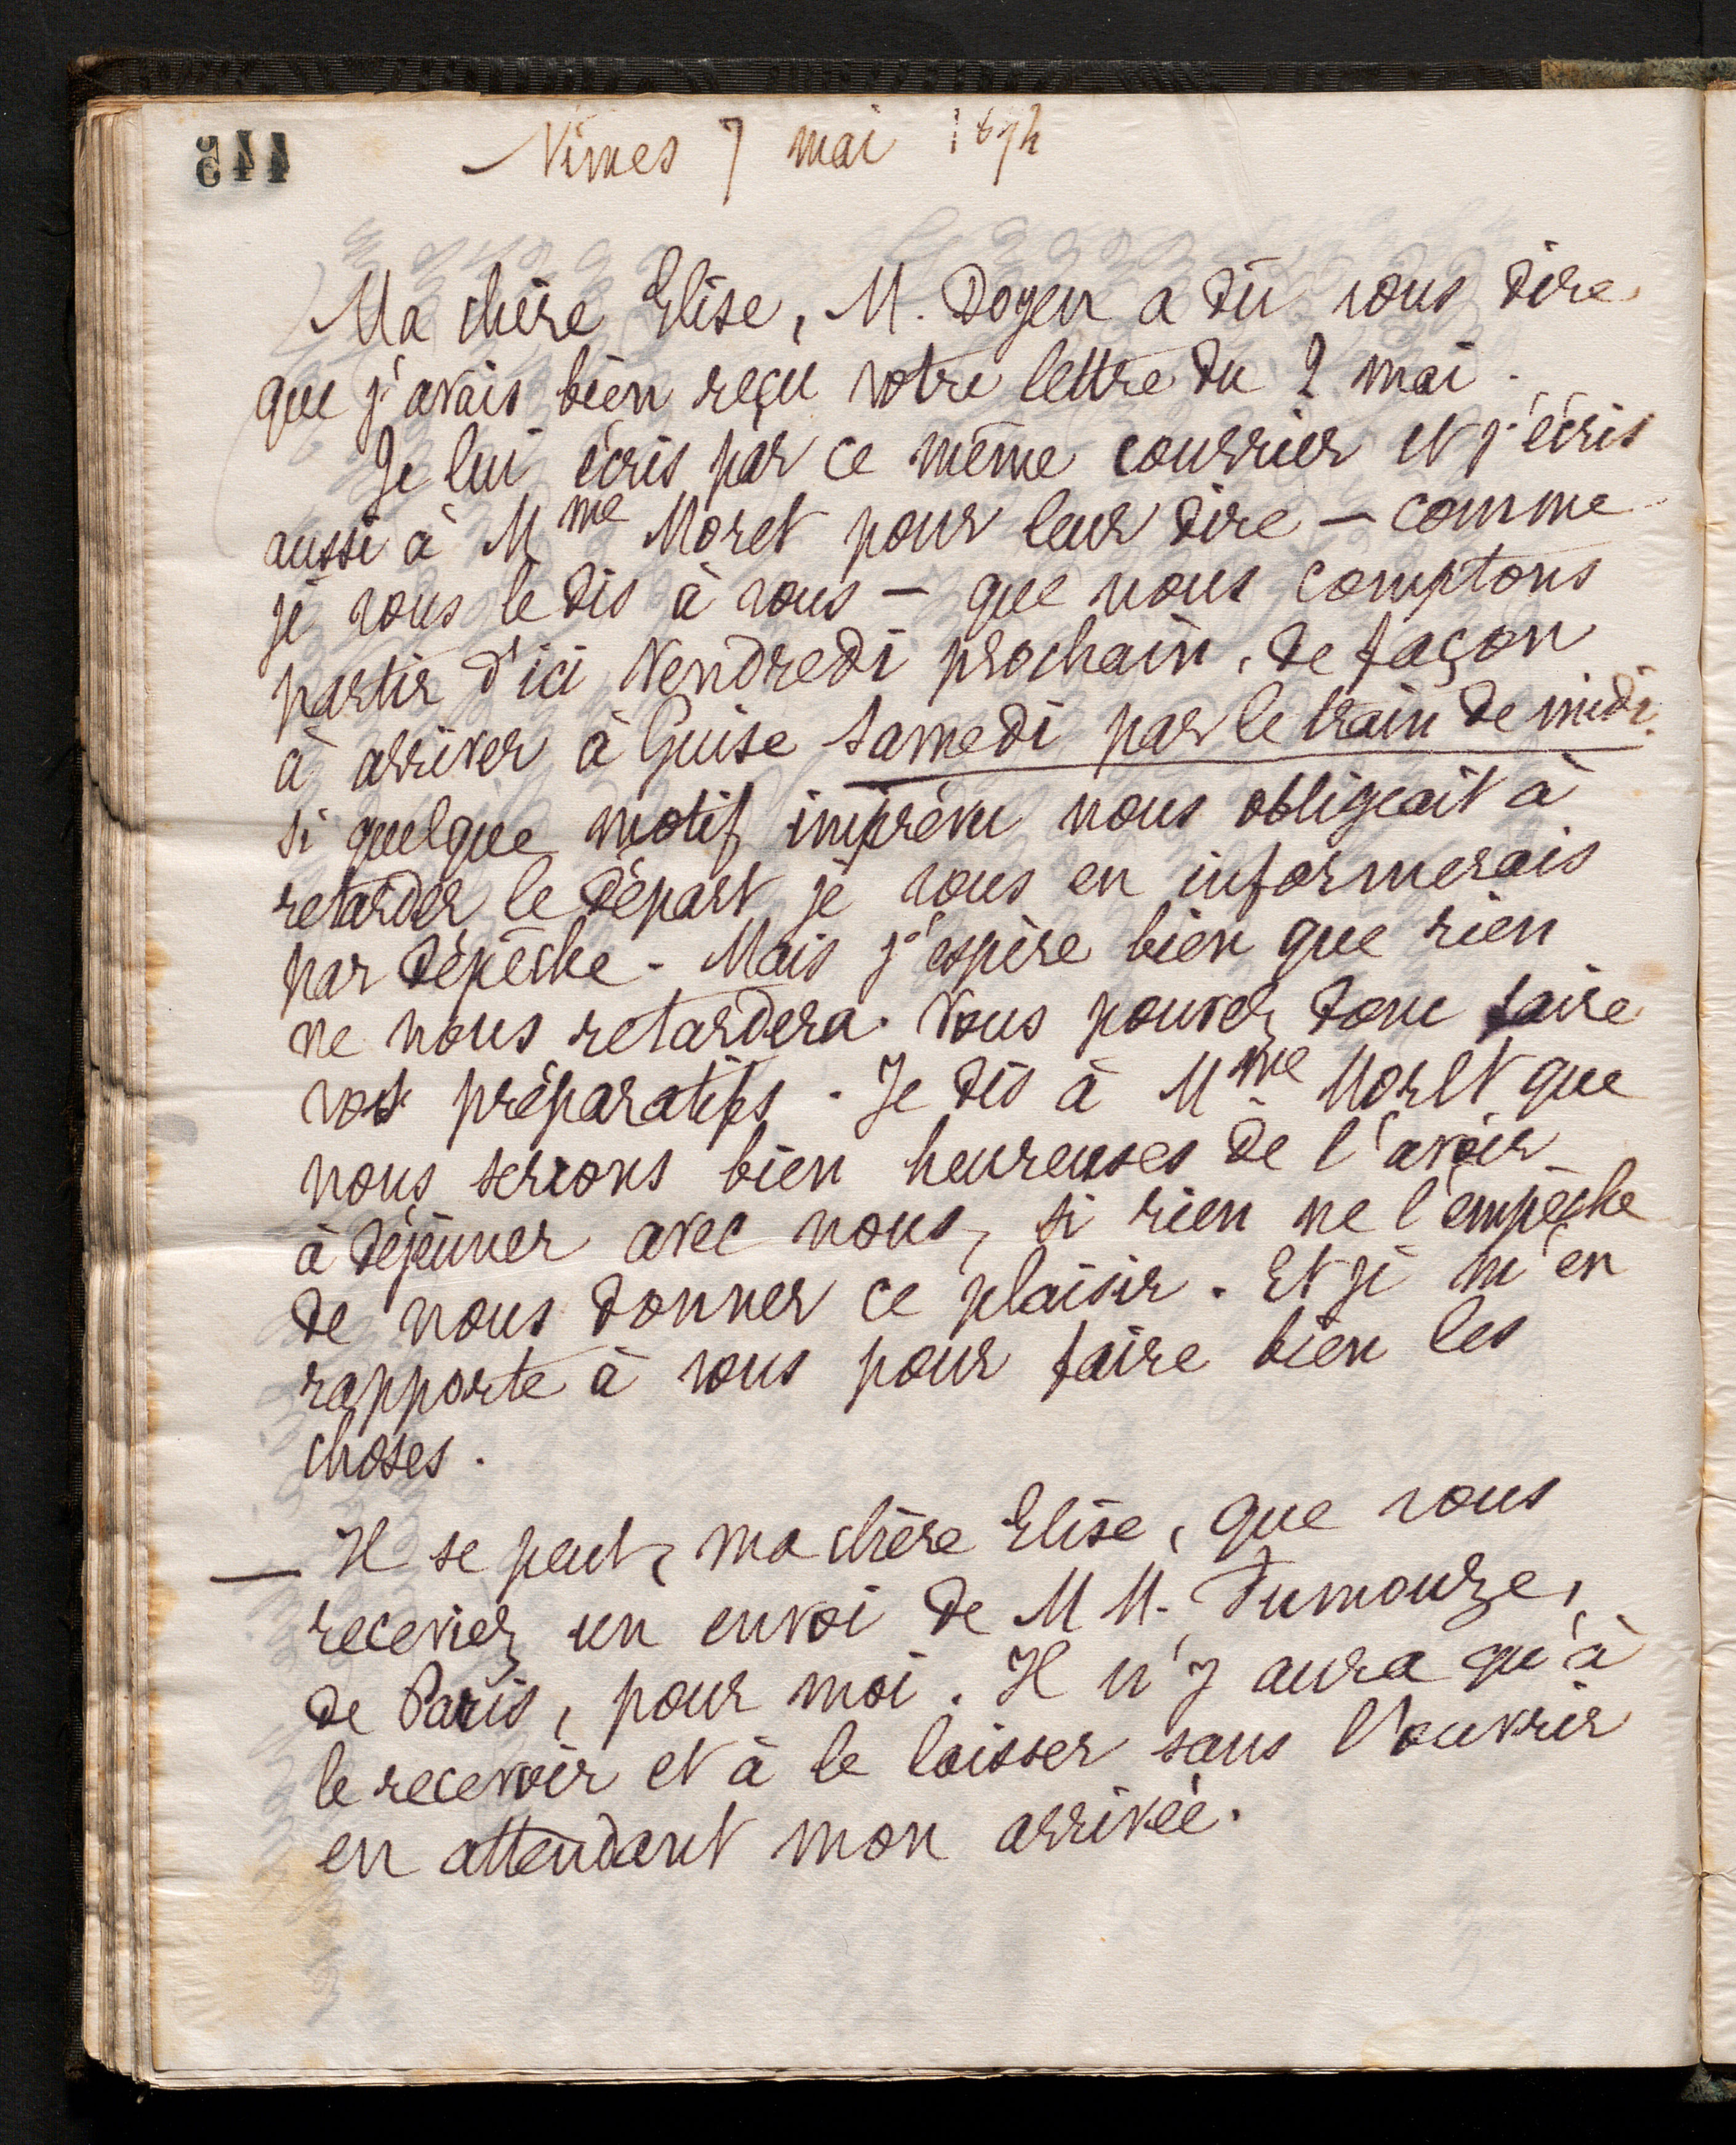 Nîmes 7 mai 1894
Ma chère Elise, M. Doyen a dû vous dire
que j'avais bien reçu votre lettre du 2 mai.
Je lui écris par ce même courrier et j'écris
aussi à Mme Moret pour leur dire – comme
je vous le dis à vous – que nous comptons
partir d'ici Vendredi prochain, de façon
à arriver à Guise samedi par le train de midi.
Si quelque motif imprévu nous obligeait à
retarder le départ je vous en informerais
par dépêche. Mais j'espère bien que rien
ne nous retardera. Vous pouvez donc faire
vos préparatifs. Je dis à Mme Moret que
nous serions bien heureuses de l'avoir
à déjeuner avec nous, si rien ne l'empêche
de nous donner ce plaisir. Et je m'en
rapporte à vous pour faire bien les
choses.
— Il se peut, ma chère Elise, que vous
receviez un envoi de M M. Fumouze,
de Paris, pour moi. Il n'y aura qu'à
le recevoir et à le laisser sans l'ouvrir
en attendant mon arrivée.